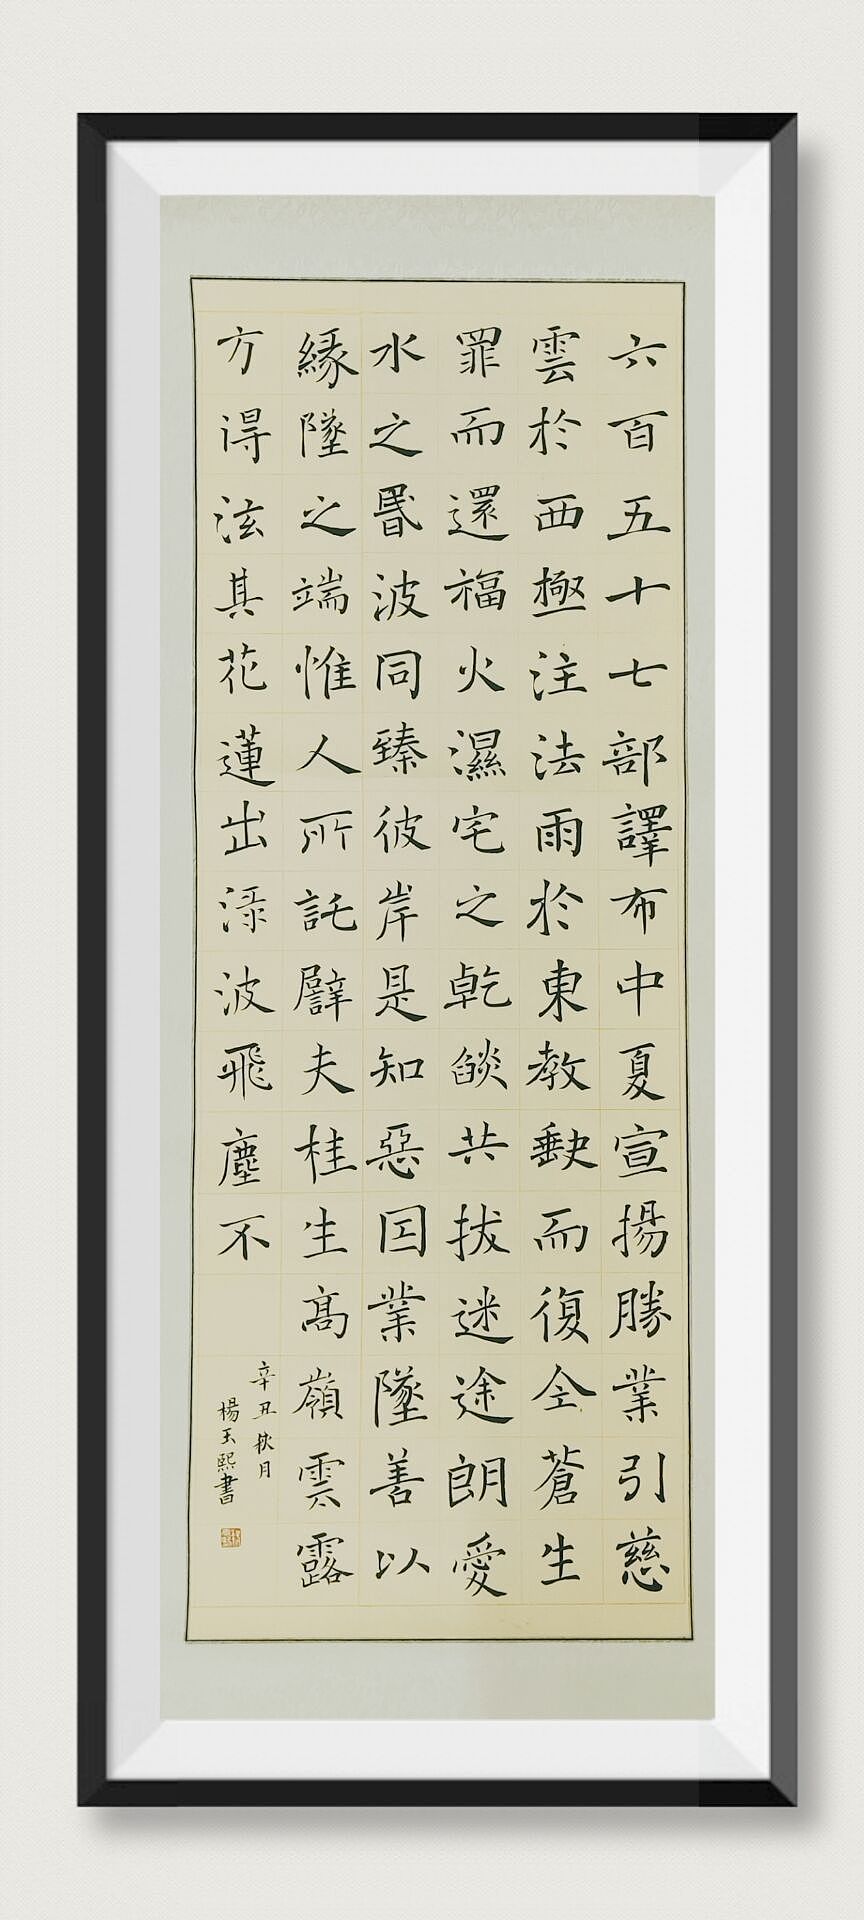 六百五十七部譯布中夏宣揚勝業引慈
雲於西極注法雨於東教缺而復全蒼生
罪而還福火濕宅之乾燄共拔迷途朗愛
水之昏波同臻彼岸是知惡因業墜善以
緣墜之端惟人所託譬夫桂生高嶺雲露
方得泫其花蓮出淥波飛塵不
辛丑秋月
楊玉熙書